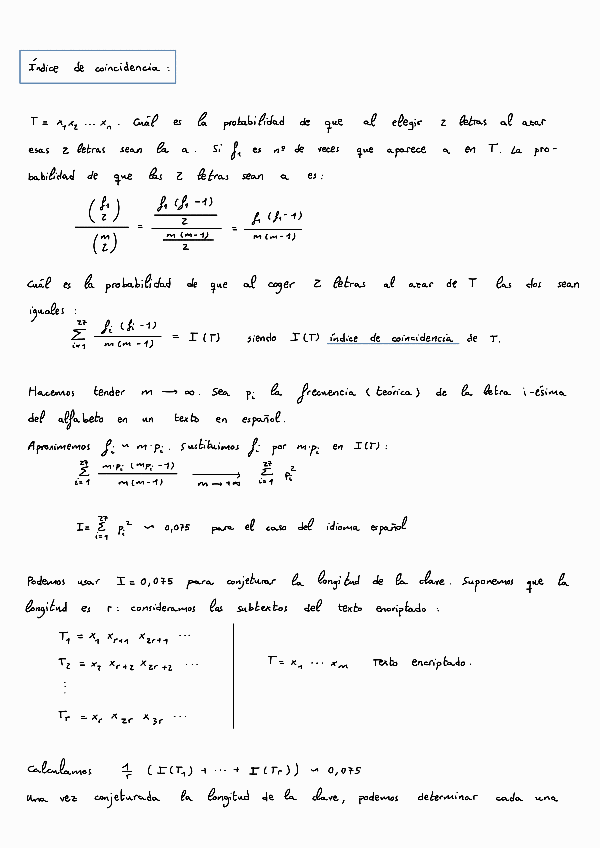 Índice de coincidencia :
T = x₁x₂ ... xₙ. Cuál es la probabilidad de que al elegir 2 letras al azar
esas 2 letras sean la a. Si f₁ es nº de veces que aparece a en T. La pro-
babilidad de que las 2 letras sean a es:
(f₁ 2) / (m 2) = (f₁(f₁-1)/2) / (m(m-1)/2) = f₁(f₁-1) / m(m-1)
Cuál es la probabilidad de que al coger 2 letras al azar de T las dos sean
iguales :
∑ᵢ₌₁²⁷ fᵢ(fᵢ-1) / m(m-1) = I(T) siendo I(T) índice de coincidencia de T.
Hacemos tender m → ∞. Sea pᵢ la frecuencia (teórica) de la letra i-ésima
del alfabeto en un texto en español.
Aproximemos fᵢ ~ m·pᵢ. Sustituimos fᵢ por m·pᵢ en I(T):
∑ᵢ₌₁²⁷ m·pᵢ(mpᵢ-1) / m(m-1) → m→+∞ ∑ᵢ₌₁²⁷ pᵢ²
I = ∑ᵢ₌₁²⁷ pᵢ² ~ 0,075 para el caso del idioma español
Podemos usar I = 0,075 para conjeturar la longitud de la clave. Suponemos que la
longitud es r: consideramos los subtextos del texto encriptado :
T₁ = x₁ xᵣ₊₁ x₂ᵣ₊₁ ...
T₂ = x₂ xᵣ₊₂ x₂ᵣ₊₂ ... T = x₁ ... xₘ Texto encriptado.
⋮
Tᵣ = xᵣ x₂ᵣ x₃ᵣ ...
Calculamos 1/r (I(T₁) + ... + I(Tᵣ)) ~ 0,075
Una vez conjeturada la longitud de la clave, podemos determinar cada una